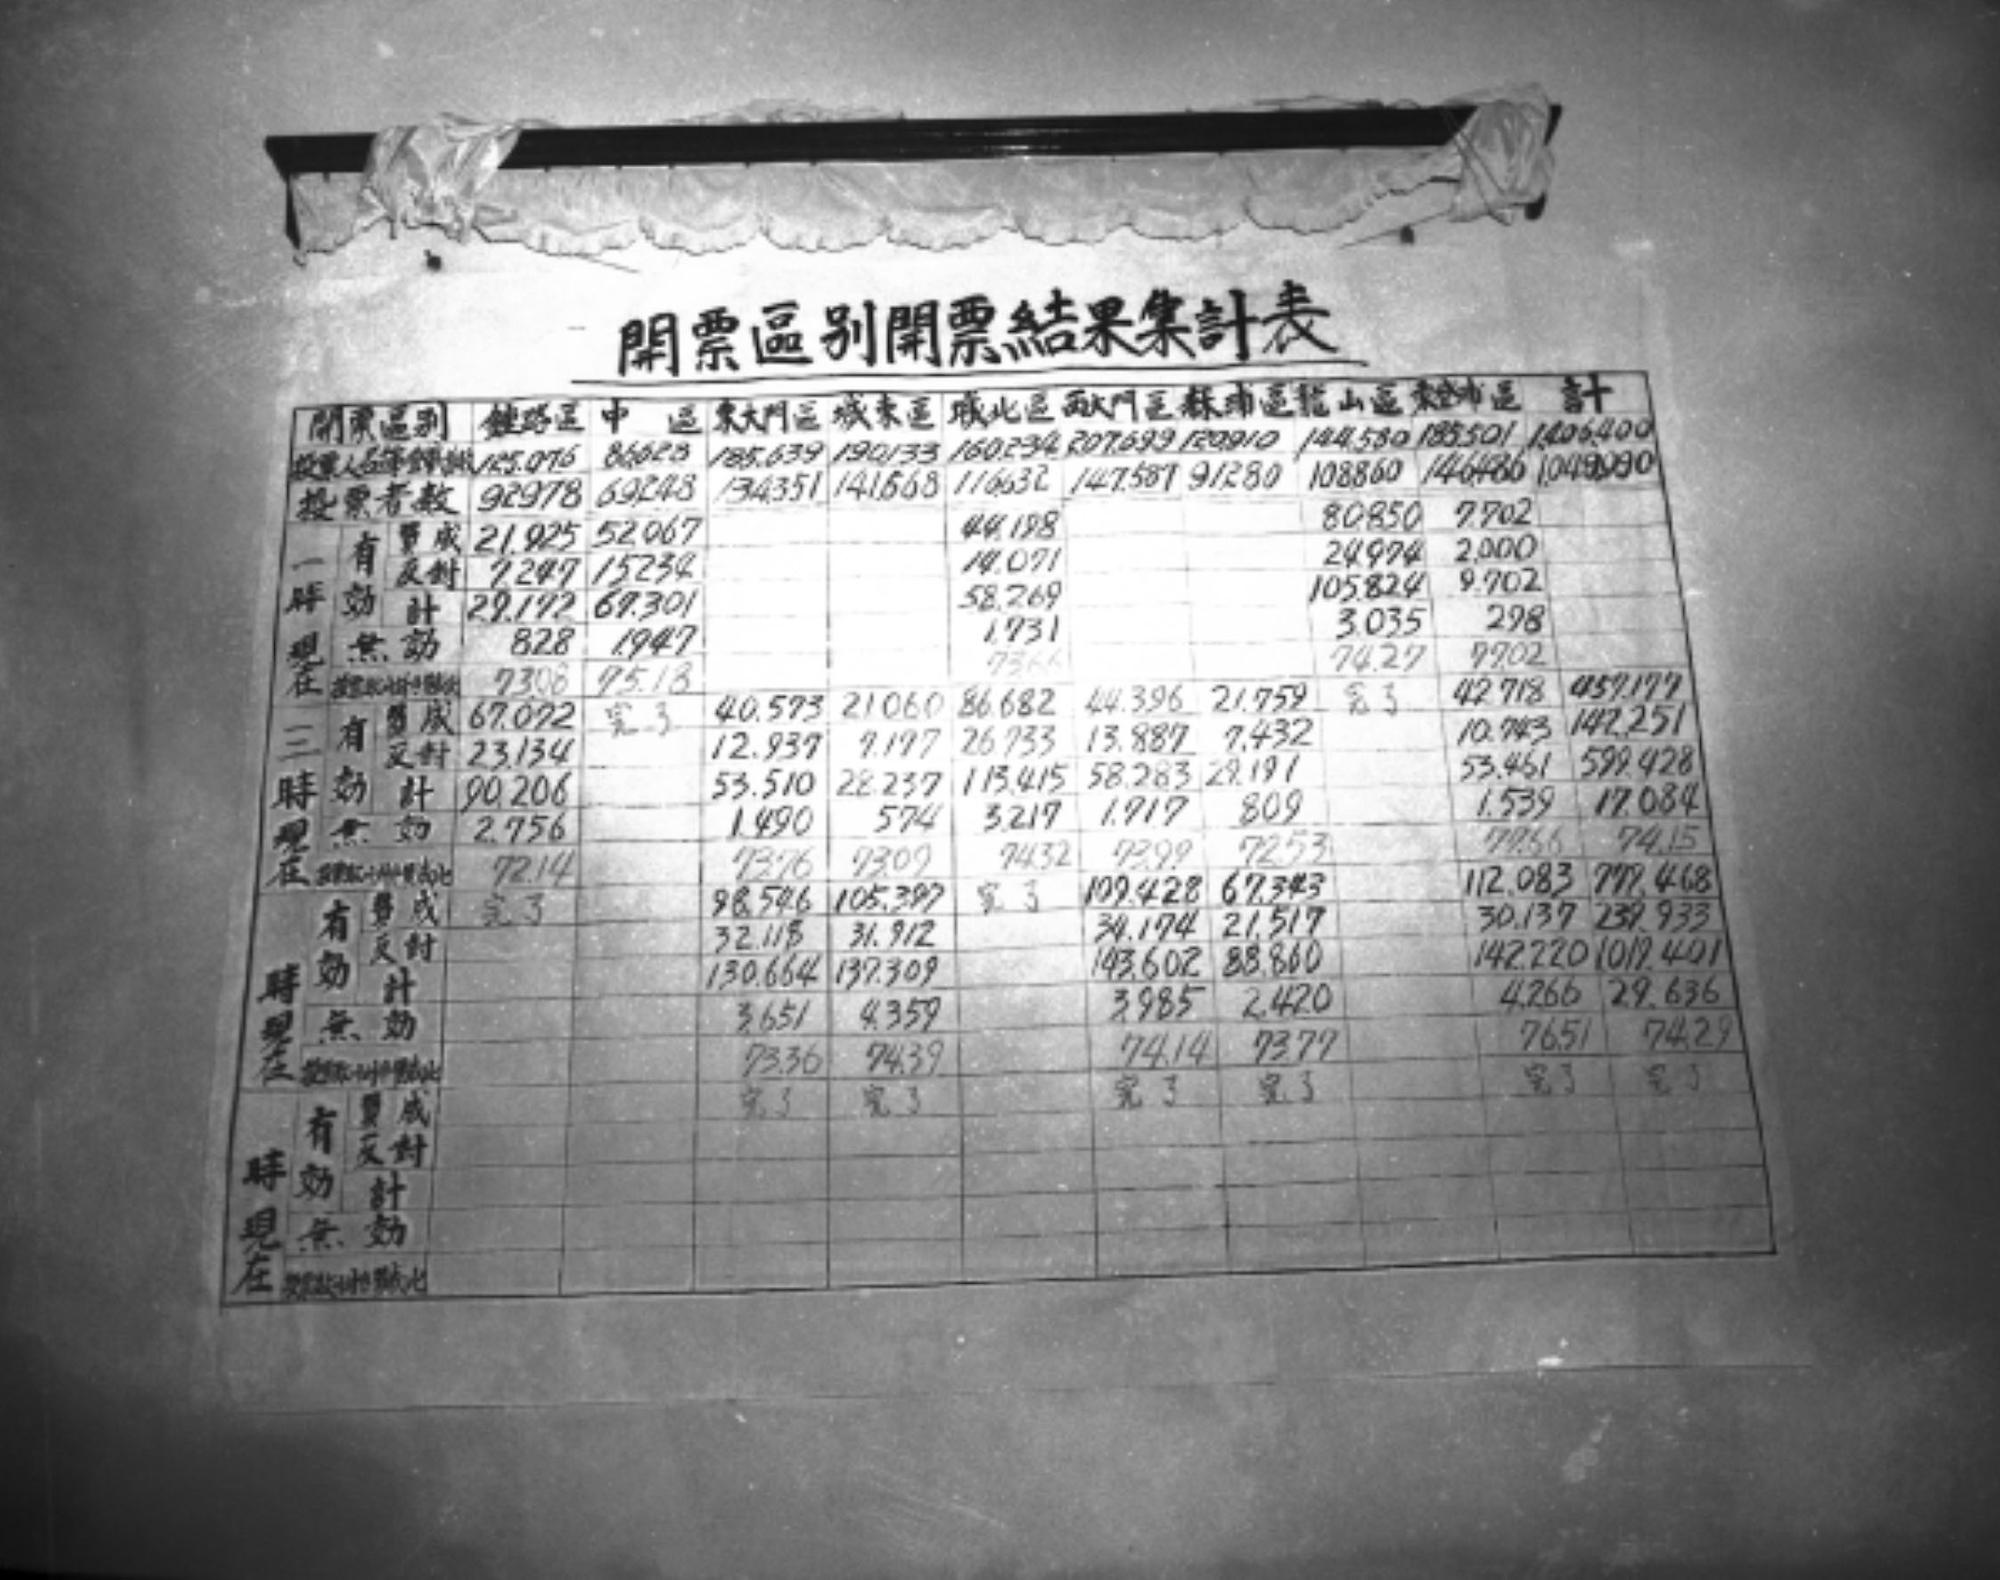 開票區別開票結果集計表
開票區別 鍾路區 中 區 東大門區 城東區 城北區 西大門區 麻浦區 龍山區 永登浦區 計
125.076 86.623 185.639 190.133 160.234 207.699 120.910 144.580 185.501 1,406.400
投票者數 92978 69248 134.351 141.668 116.632 147.587 91.280 108860 146.486 1,049.090
一時現在 有効 贊成 21.925 52.067 44.198 80.850 7.702
反對 7.247 15.234 14.071 24.974 2.000
計 29.172 67.301 58.269 105.824 9.702
無効 828 1.947 1.731 3.035 298
73.08 75.18 73.66 74.27 77.02
三時現在 有効 贊成 67.072 完了 40.573 21.060 86.682 44.396 21.759 完了 42.718 457.177
反對 23.134 12.937 7.177 26.733 13.887 7.432 10.743 142.251
計 90.206 53.510 28.237 113.415 58.283 29.191 53.461 599.428
無効 2.756 1.490 574 3.217 1.717 809 1.539 17.084
72.14 73.76 73.09 74.32 73.99 72.53 77.66 74.15
時現在 有効 贊成 完了 98.546 105.397 完了 109.428 67.343 112.083 777.468
反對 32.118 31.912 34.174 21.517 30.137 239.933
計 130.664 137.309 143.602 88.860 142.220 1017.401
無効 3.651 4.359 3.985 2.420 4.266 29.636
73.36 74.39 74.14 73.77 76.51 74.29
時現在 有効 贊成 完了 完了 完了 完了 完了 完了
反對
計
無効